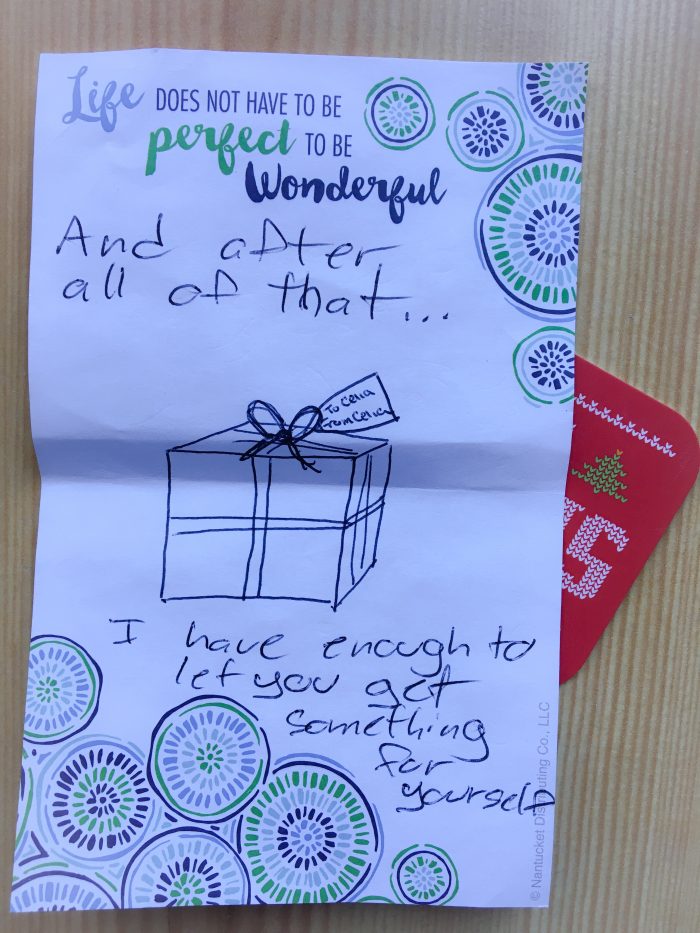 Life DOES NOT HAVE TO BE
perfect TO BE
Wonderful
And after
all of that...
To Celia
From Celia
I have enough to
let you get
something
for
yourself
© Nantucket Distributing Co., LLC